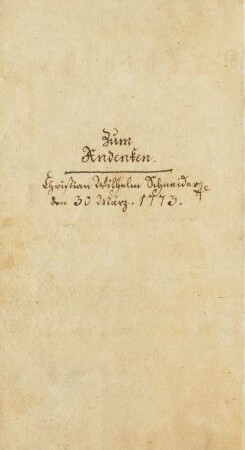 Zum
Andenken.
Christian Wilhelm Schneider
den 30 März. 1773.